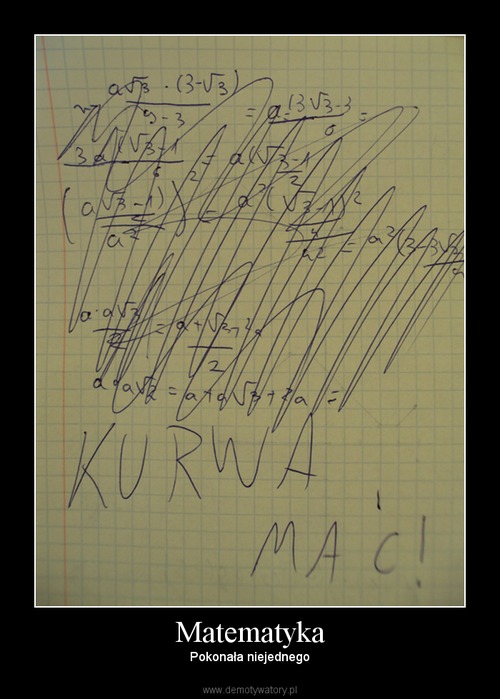 a√3 · (3-√3)
9 - 3
= a(3√3-3
6
=
3a(√3-1
6
= a(√3-1
2
(a√3-1)
)² = a²(√3-1)²
= a²(3-
a·a√3
2
= a+
2
a·a√3 = a+a√3+2a =
KURWA
MAĆ!
Matematyka
Pokonała niejednego
www.demotywatory.pl